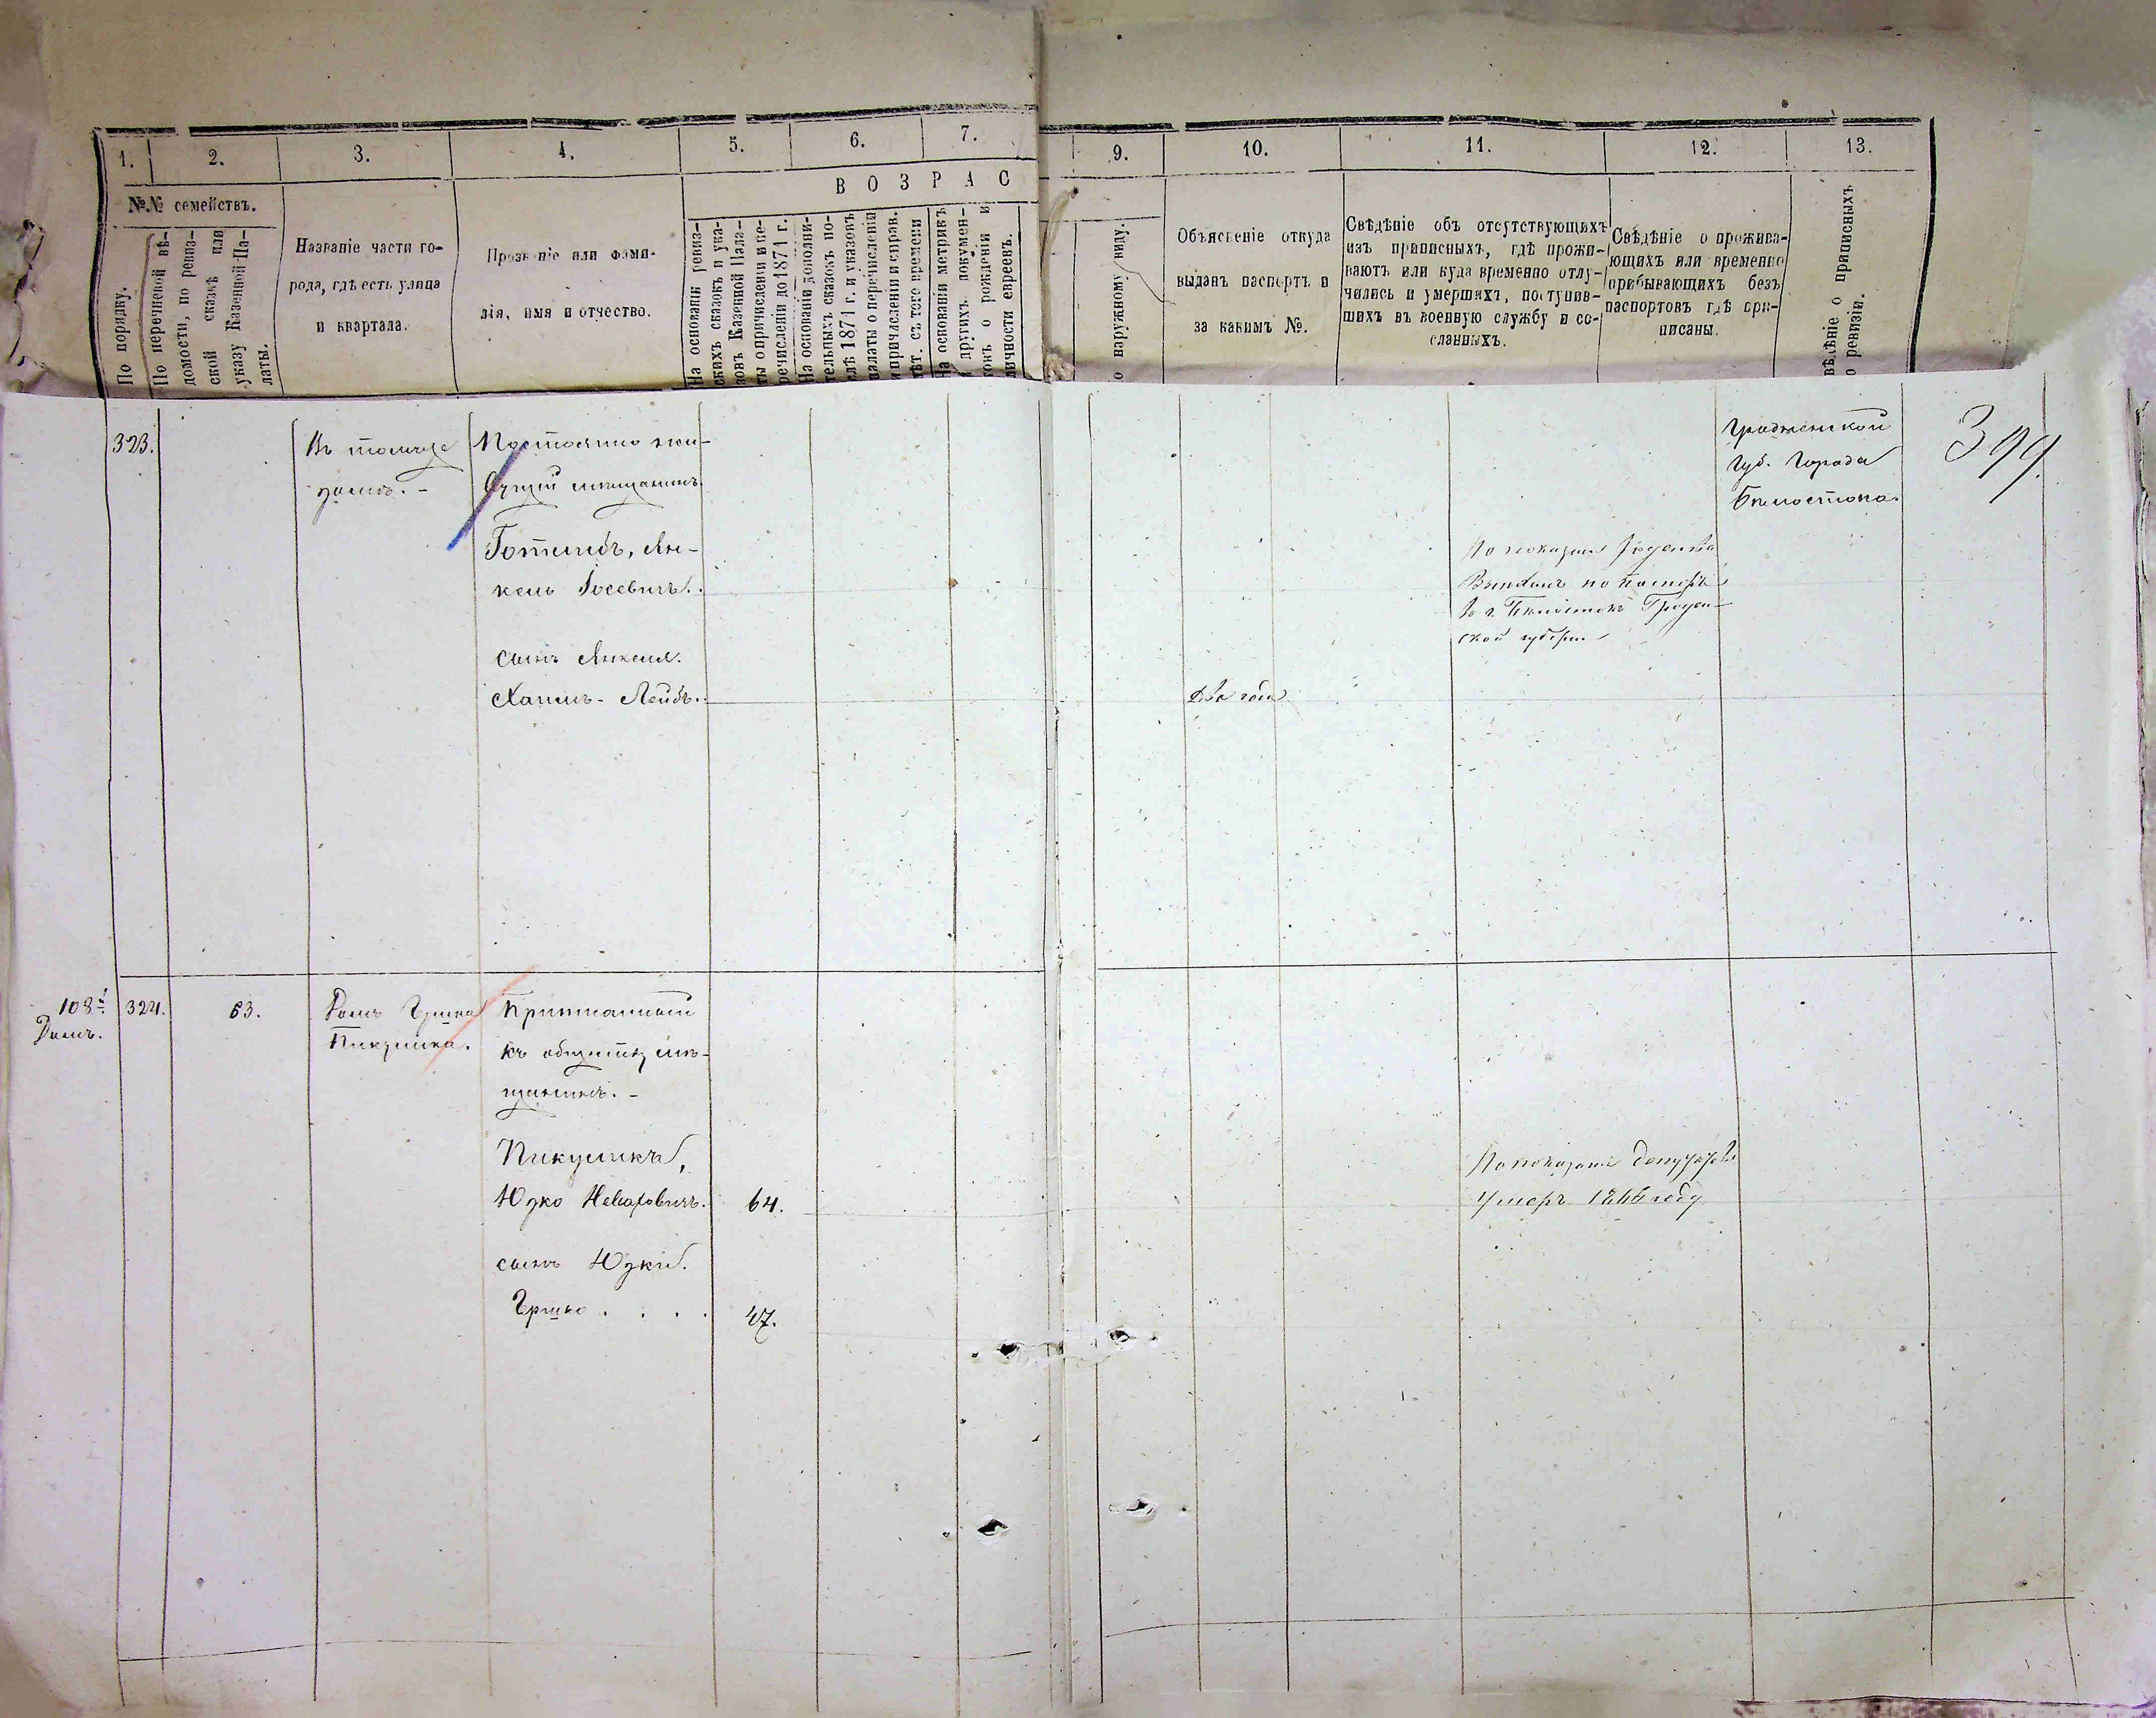 1.
2.
3.
4.
5.
6.
7.
9.
10.
11.
12.
13.
№№ семействъ.
По порядку.
По перечневой вѣ-
домости, по ревиз-
ской сказкѣ или
указу Казенной Па-
латы.
Названіе части го-
рода, гдѣ есть улица
и квартала.
Прозваніе или фами-
лія, имя и отчество.
ВОЗРАС
На основаніи ревиз-
скихъ сказокъ и ука-
зовъ Казенной Пала-
ты о причисленіи и пе-
речисленіи до 1871 г.
На основаніи дополни-
тельныхъ сказокъ по-
слѣ 1871 г. и указовъ
палаты о перечисленіи
и причисленіи и справ.
лѣт. съ того времени
На основаніи метрикъ
и другихъ докумен-
товъ о рожденіи и
личности евреевъ.
о наружному виду.
Объясненіе откуда
выданъ паспортъ и
за какимъ №.
Свѣдѣніе объ отсутствующихъ
изъ приписныхъ, гдѣ прожи-
ваютъ или куда временно отлу-
чились и умершихъ, поступив-
шихъ въ военную службу и со-
сланныхъ.
Свѣдѣніе о прожива-
ющихъ или временно
прибывающихъ безъ
паспортовъ гдѣ при-
писаны.
вѣдѣніе о приписныхъ
о ревизіи.
323.
Въ томъ же
домѣ. -
Постоянно жи-
вущій мѣщанинъ.
Готлибъ, Ян-
кель Іосевичъ.
сынъ Янкеля.
Хаимъ-Лейбъ.
Два года
По показанію
Выехалъ по
въ г. Бѣлостокъ Гродн-
ской губерніи
Гродненской
Губ. Города
Бѣлостока.
399.
108й
Домъ.
324.
63.
Домъ Гришка
Пикушика.
Приписанный
къ обществу мѣ-
щанинъ. -
Пикушикъ,
Юдко Невахович.
64.
По показанію
Умеръ году
сынъ Юдки.
Гришко . . . .
47.